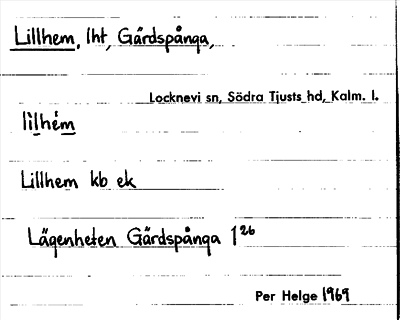 Lillhem, lht, Gärdspånga,
Locknevi sn, Södra Tjusts hd, Kalm. l.
lìlhém
Lillhem kb ek
Lägenheten Gärdspånga 1 26
Per Helge 1969